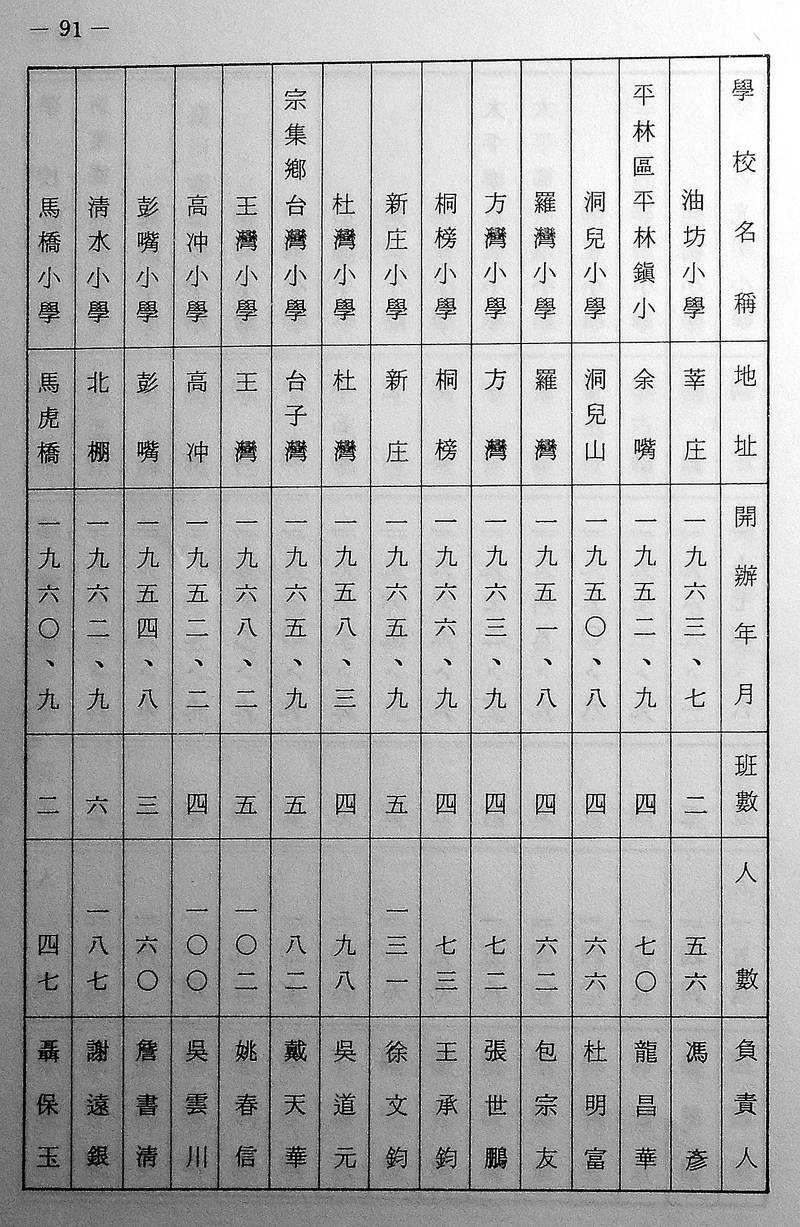 — 91 —
學校名稱 地址 開辦年月 班數 人數 負責人
油坊小學 莘庄 一九六三、七 二 五六 馮彥
平林區平林鎭小 余嘴 一九五二、九 四 七〇 龍昌華
洞兒小學 洞兒山 一九五〇、八 四 六六 杜明富
羅灣小學 羅灣 一九五一、八 四 六二 包宗友
方灣小學 方灣 一九六三、九 四 七二 張世鵬
桐榜小學 桐榜 一九六六、九 四 七三 王承鈞
新庄小學 新庄 一九六五、九 五 一三一 徐文鈞
杜灣小學 杜灣 一九五八、三 四 九八 吳道元
宗集鄉台灣小學 台子灣 一九六五、九 五 八二 戴天華
王灣小學 王灣 一九六八、二 五 一〇二 姚春信
高冲小學 高冲 一九五二、二 四 一〇〇 吳雲川
彭嘴小學 彭嘴 一九五四、八 三 六〇 詹書清
淸水小學 北棚 一九六二、九 六 一八七 謝遠銀
馬橋小學 馬虎橋 一九六〇、九 二 四七 聶保玉